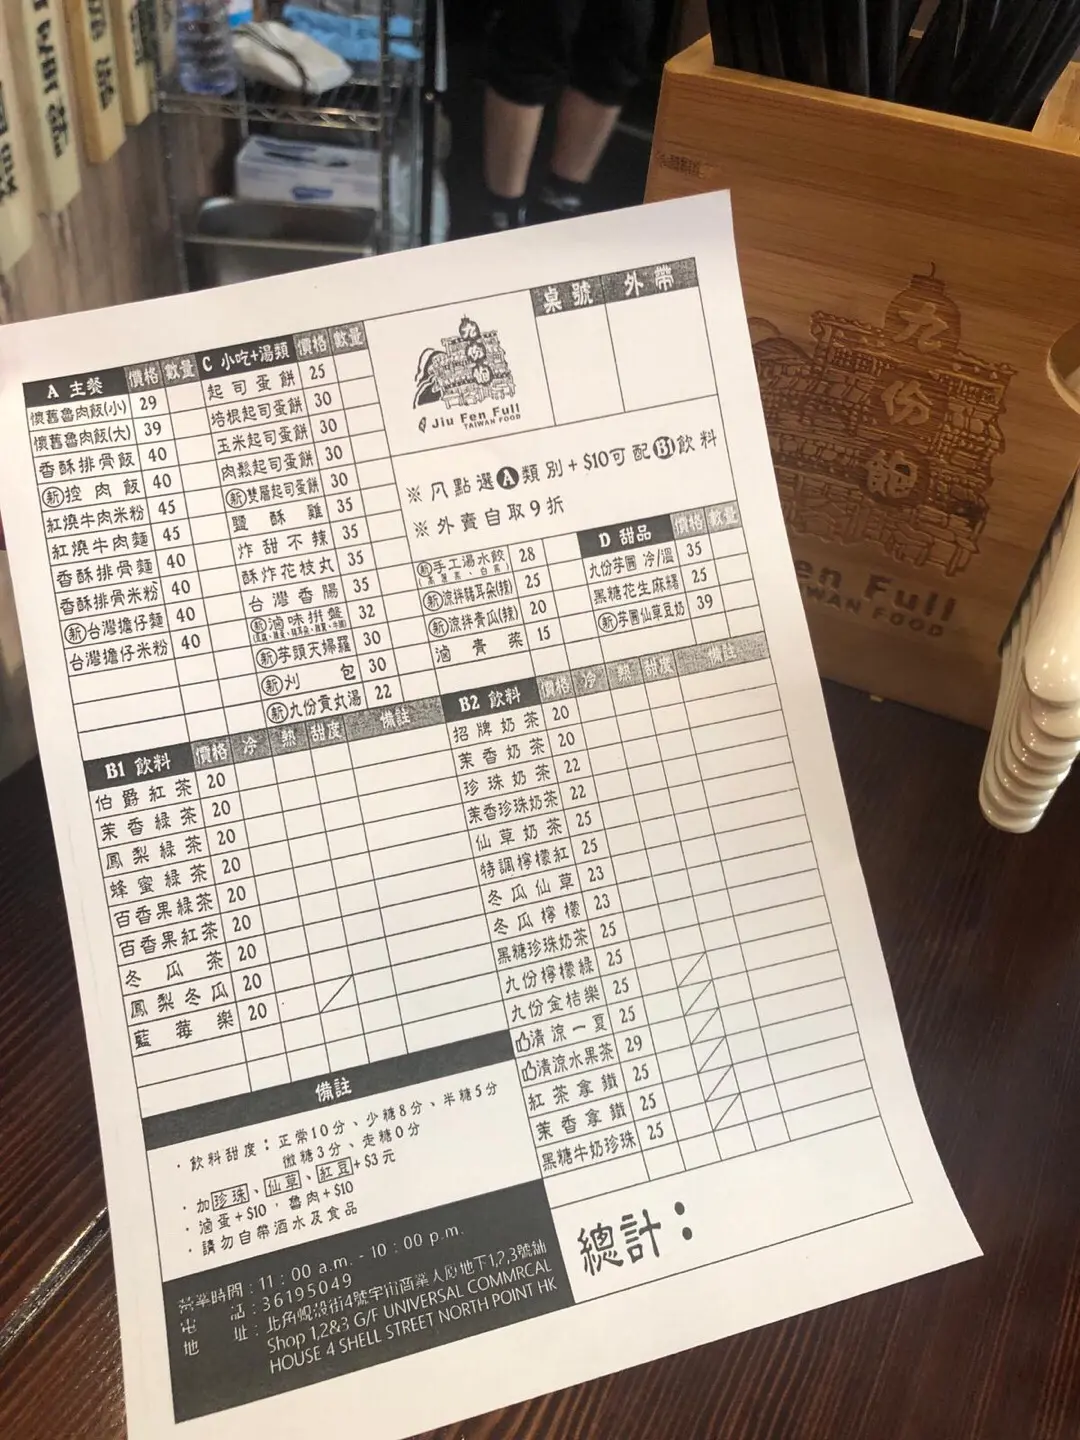 桌號 外帶
九份飽
Jiu Fen Full
TAIWAN FOOD
A 主餐 價格 數量
懷舊魯肉飯(小) 29
懷舊魯肉飯(大) 39
香酥排骨飯 40
新 控肉飯 40
紅燒牛肉米粉 45
紅燒牛肉麵 45
香酥排骨麵 40
香酥排骨米粉 40
新 台灣擔仔麵 40
台灣擔仔米粉 40
C 小吃+湯類 價格 數量
起司蛋餅 25
培根起司蛋餅 30
玉米起司蛋餅 30
肉鬆起司蛋餅 30
新 雙層起司蛋餅 30
鹽酥雞 35
炸甜不辣 35
酥炸花枝丸 35
台灣香腸 35
新 滷味拼盤 32
新 芋頭天婦羅 30
新 刈包 30
新 九份貢丸湯 22
※ 凡點選A類別+$10可配B1飲料
※ 外賣自取9折
新 手工湯水餃 28
新 涼拌豬耳朵(辣) 25
新 涼拌青瓜(辣) 20
滷青菜 15
D 甜品 價格 數量
九份芋圓 冷/溫 35
黑糖花生麻糬 25
新 芋圓仙草豆奶 39
B1 飲料 價格 冷 熱 甜度 備註
伯爵紅茶 20
茉香綠茶 20
鳳梨綠茶 20
蜂蜜綠茶 20
百香果綠茶 20
百香果紅茶 20
冬瓜茶 20
鳳梨冬瓜 20
藍莓樂 20
B2 飲料 價格 冷 熱 甜度 備註
招牌奶茶 20
茉香奶茶 20
珍珠奶茶 22
茉香珍珠奶茶 22
仙草奶茶 25
特調檸檬紅 25
冬瓜仙草 23
冬瓜檸檬 23
黑糖珍珠奶茶 25
九份檸檬綠 25
九份金桔樂 25
清涼一夏 25
清涼水果茶 29
紅茶拿鐵 25
茉香拿鐵 25
黑糖牛奶珍珠 25
備註
·飲料甜度：正常10分、少糖8分、半糖5分
微糖3分、走糖0分
·加珍珠、仙草、紅豆+$3元
·滷蛋+$10，魯肉+$10
·請勿自帶酒水及食品
總計：
營業時間：11：00 a.m. - 10：00 p.m.
電話：36195049
地址：北角蜆殼街4號宇宙商業大廈地下1,2,3號舖
Shop 1,2&3 G/F UNIVERSAL COMMRCAL
HOUSE 4 SHELL STREET NORTH POINT HK
九份飽
en Full
TAIWAN FOOD